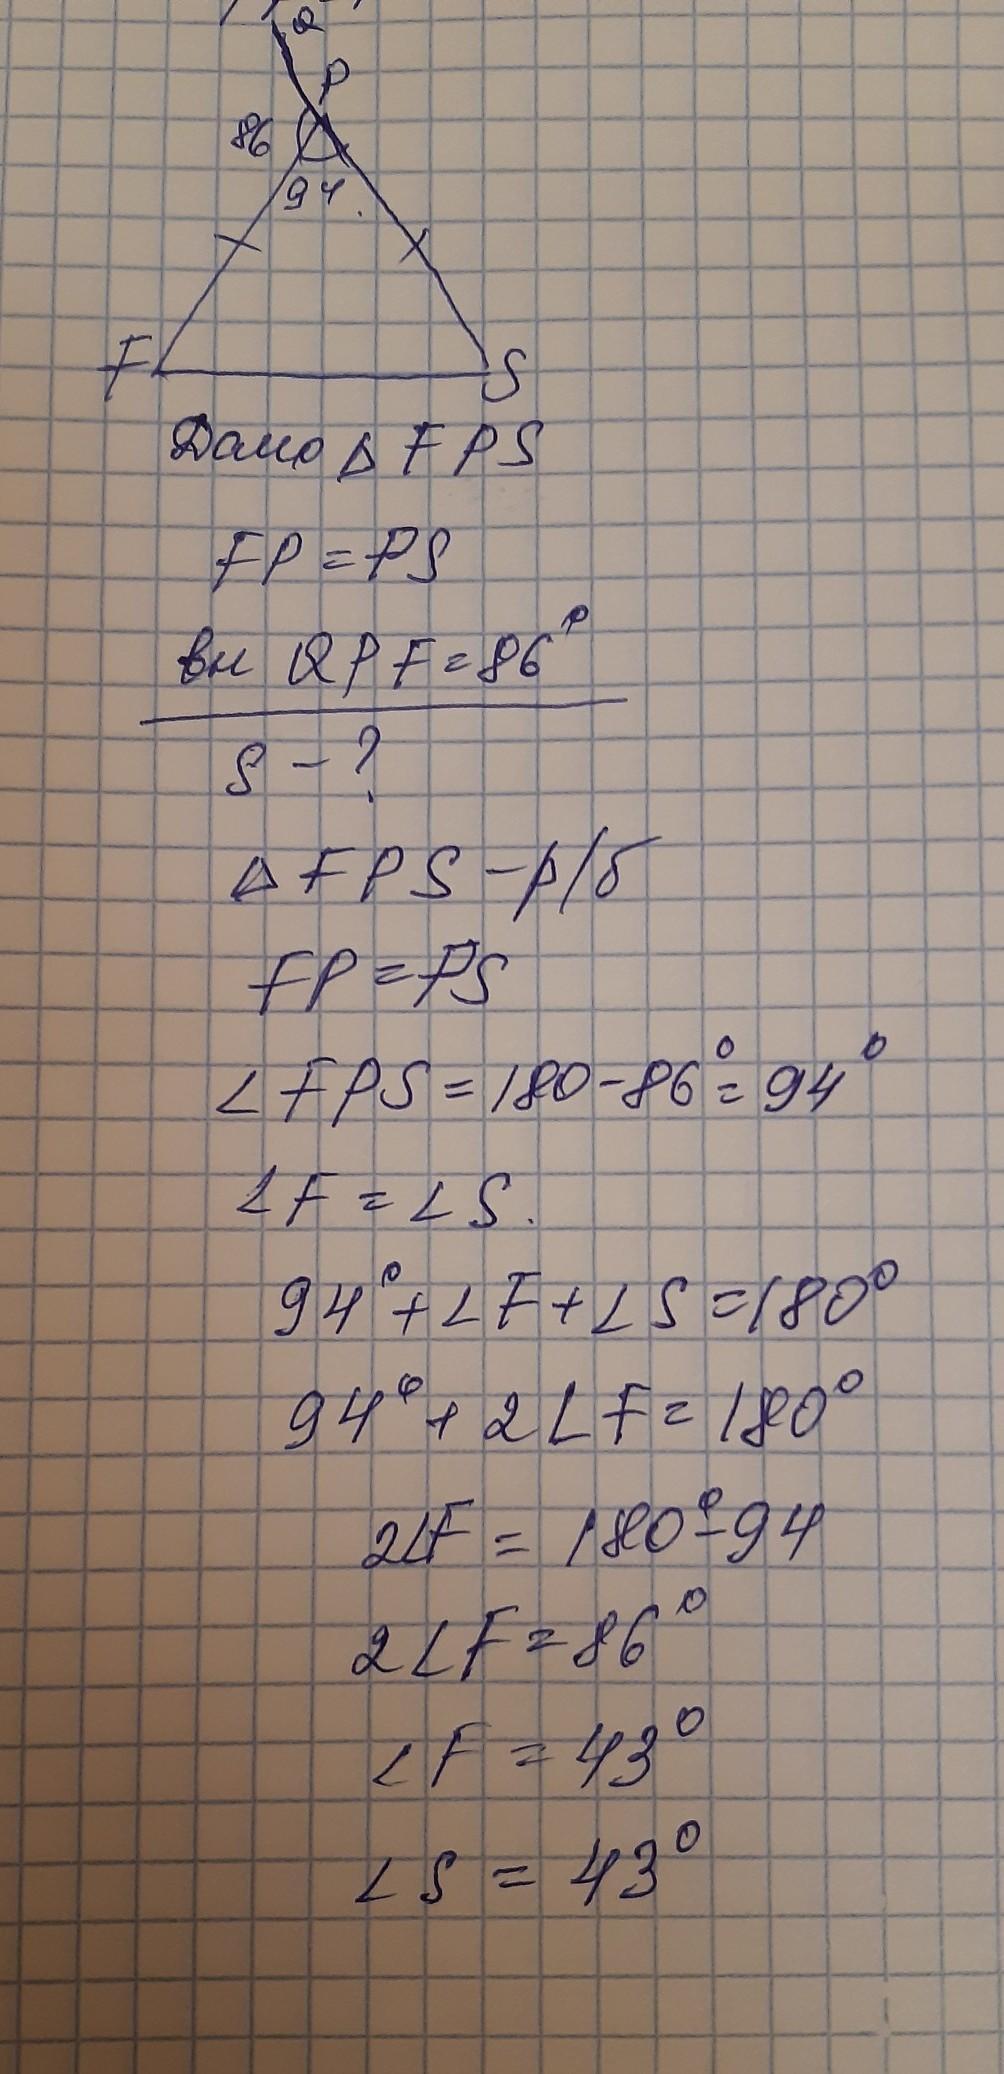 Q
P
86
94
F S
Дано Δ FPS
FP = PS
вн QPF = 86°
S - ?
Δ FPS - р/б
FP = PS
∠FPS = 180 - 86° = 94°
∠F = ∠S.
94° + ∠F + ∠S = 180°
94° + 2∠F = 180°
2∠F = 180° - 94
2∠F = 86°
∠F = 43°
∠S = 43°